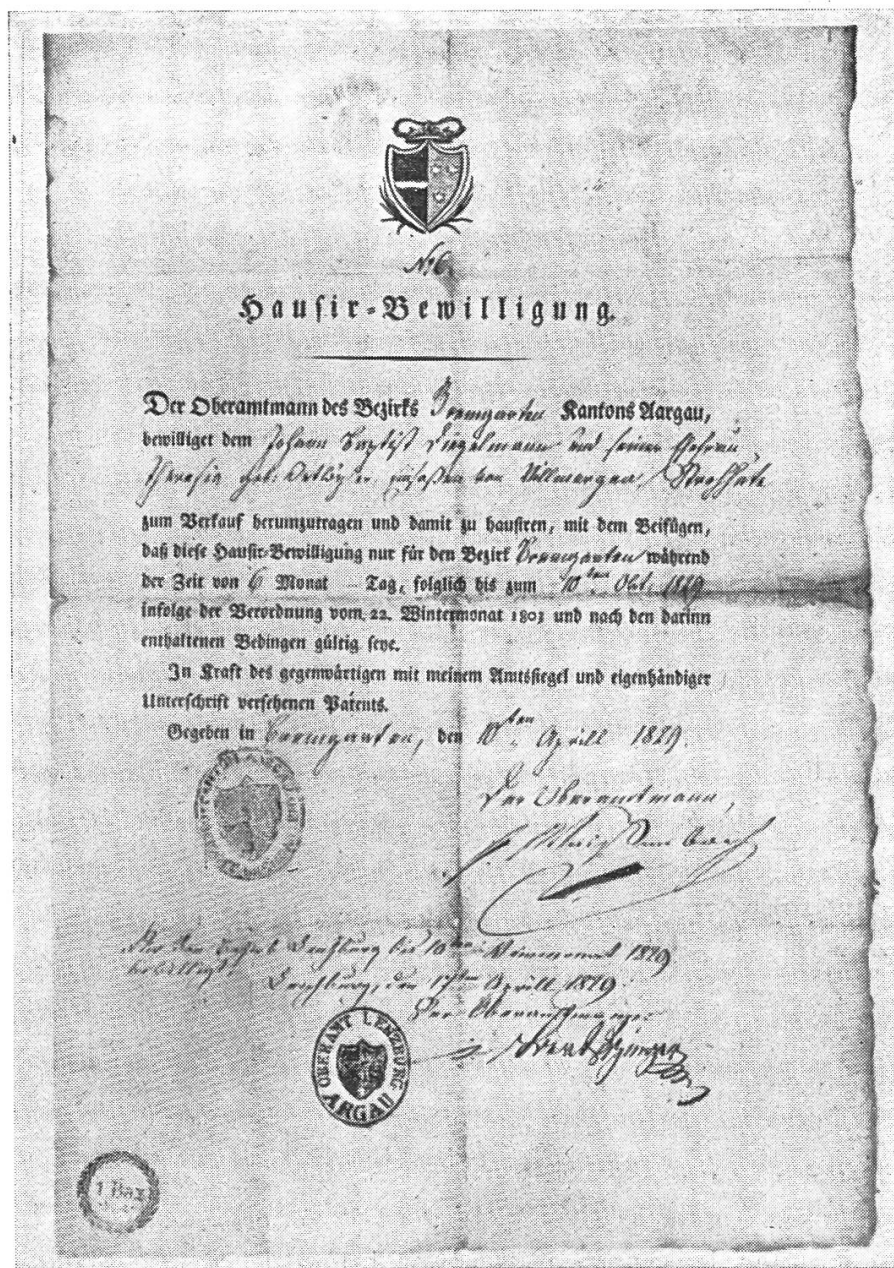 No 6.
Hausir-Bewilligung.
Der Oberamtmann des Bezirks Bremgarten Kantons Aargau,
bewilliget dem Johann Baptist und seiner Ehefrau
Theresia geb. von Villmergen, Strohhüte
zum Verkauf herumzutragen und damit zu hausiren, mit dem Beifügen,
daß diese Hausir-Bewilligung nur für den Bezirk Bremgarten während
der Zeit von 6 Monat — Tag, folglich bis zum 10ten Obt. 1829
infolge der Verordnung vom 22. Wintermonat 1803 und nach den darinn
enthaltenen Bedingen gültig seye.
In Kraft des gegenwärtigen mit meinem Amtssiegel und eigenhändiger
Unterschrift versehenen Patents.
Gegeben in Bremgarten, den 10ten Aprill 1829.
Der Oberamtmann,
Für den Bezirk Lenzburg bis 10ten 1829
bewilligt.
Lenzburg, den 17ten Aprill 1829.
Der Oberamtmann
OBERAMT LENZBURG
ARGAU
1 Baz